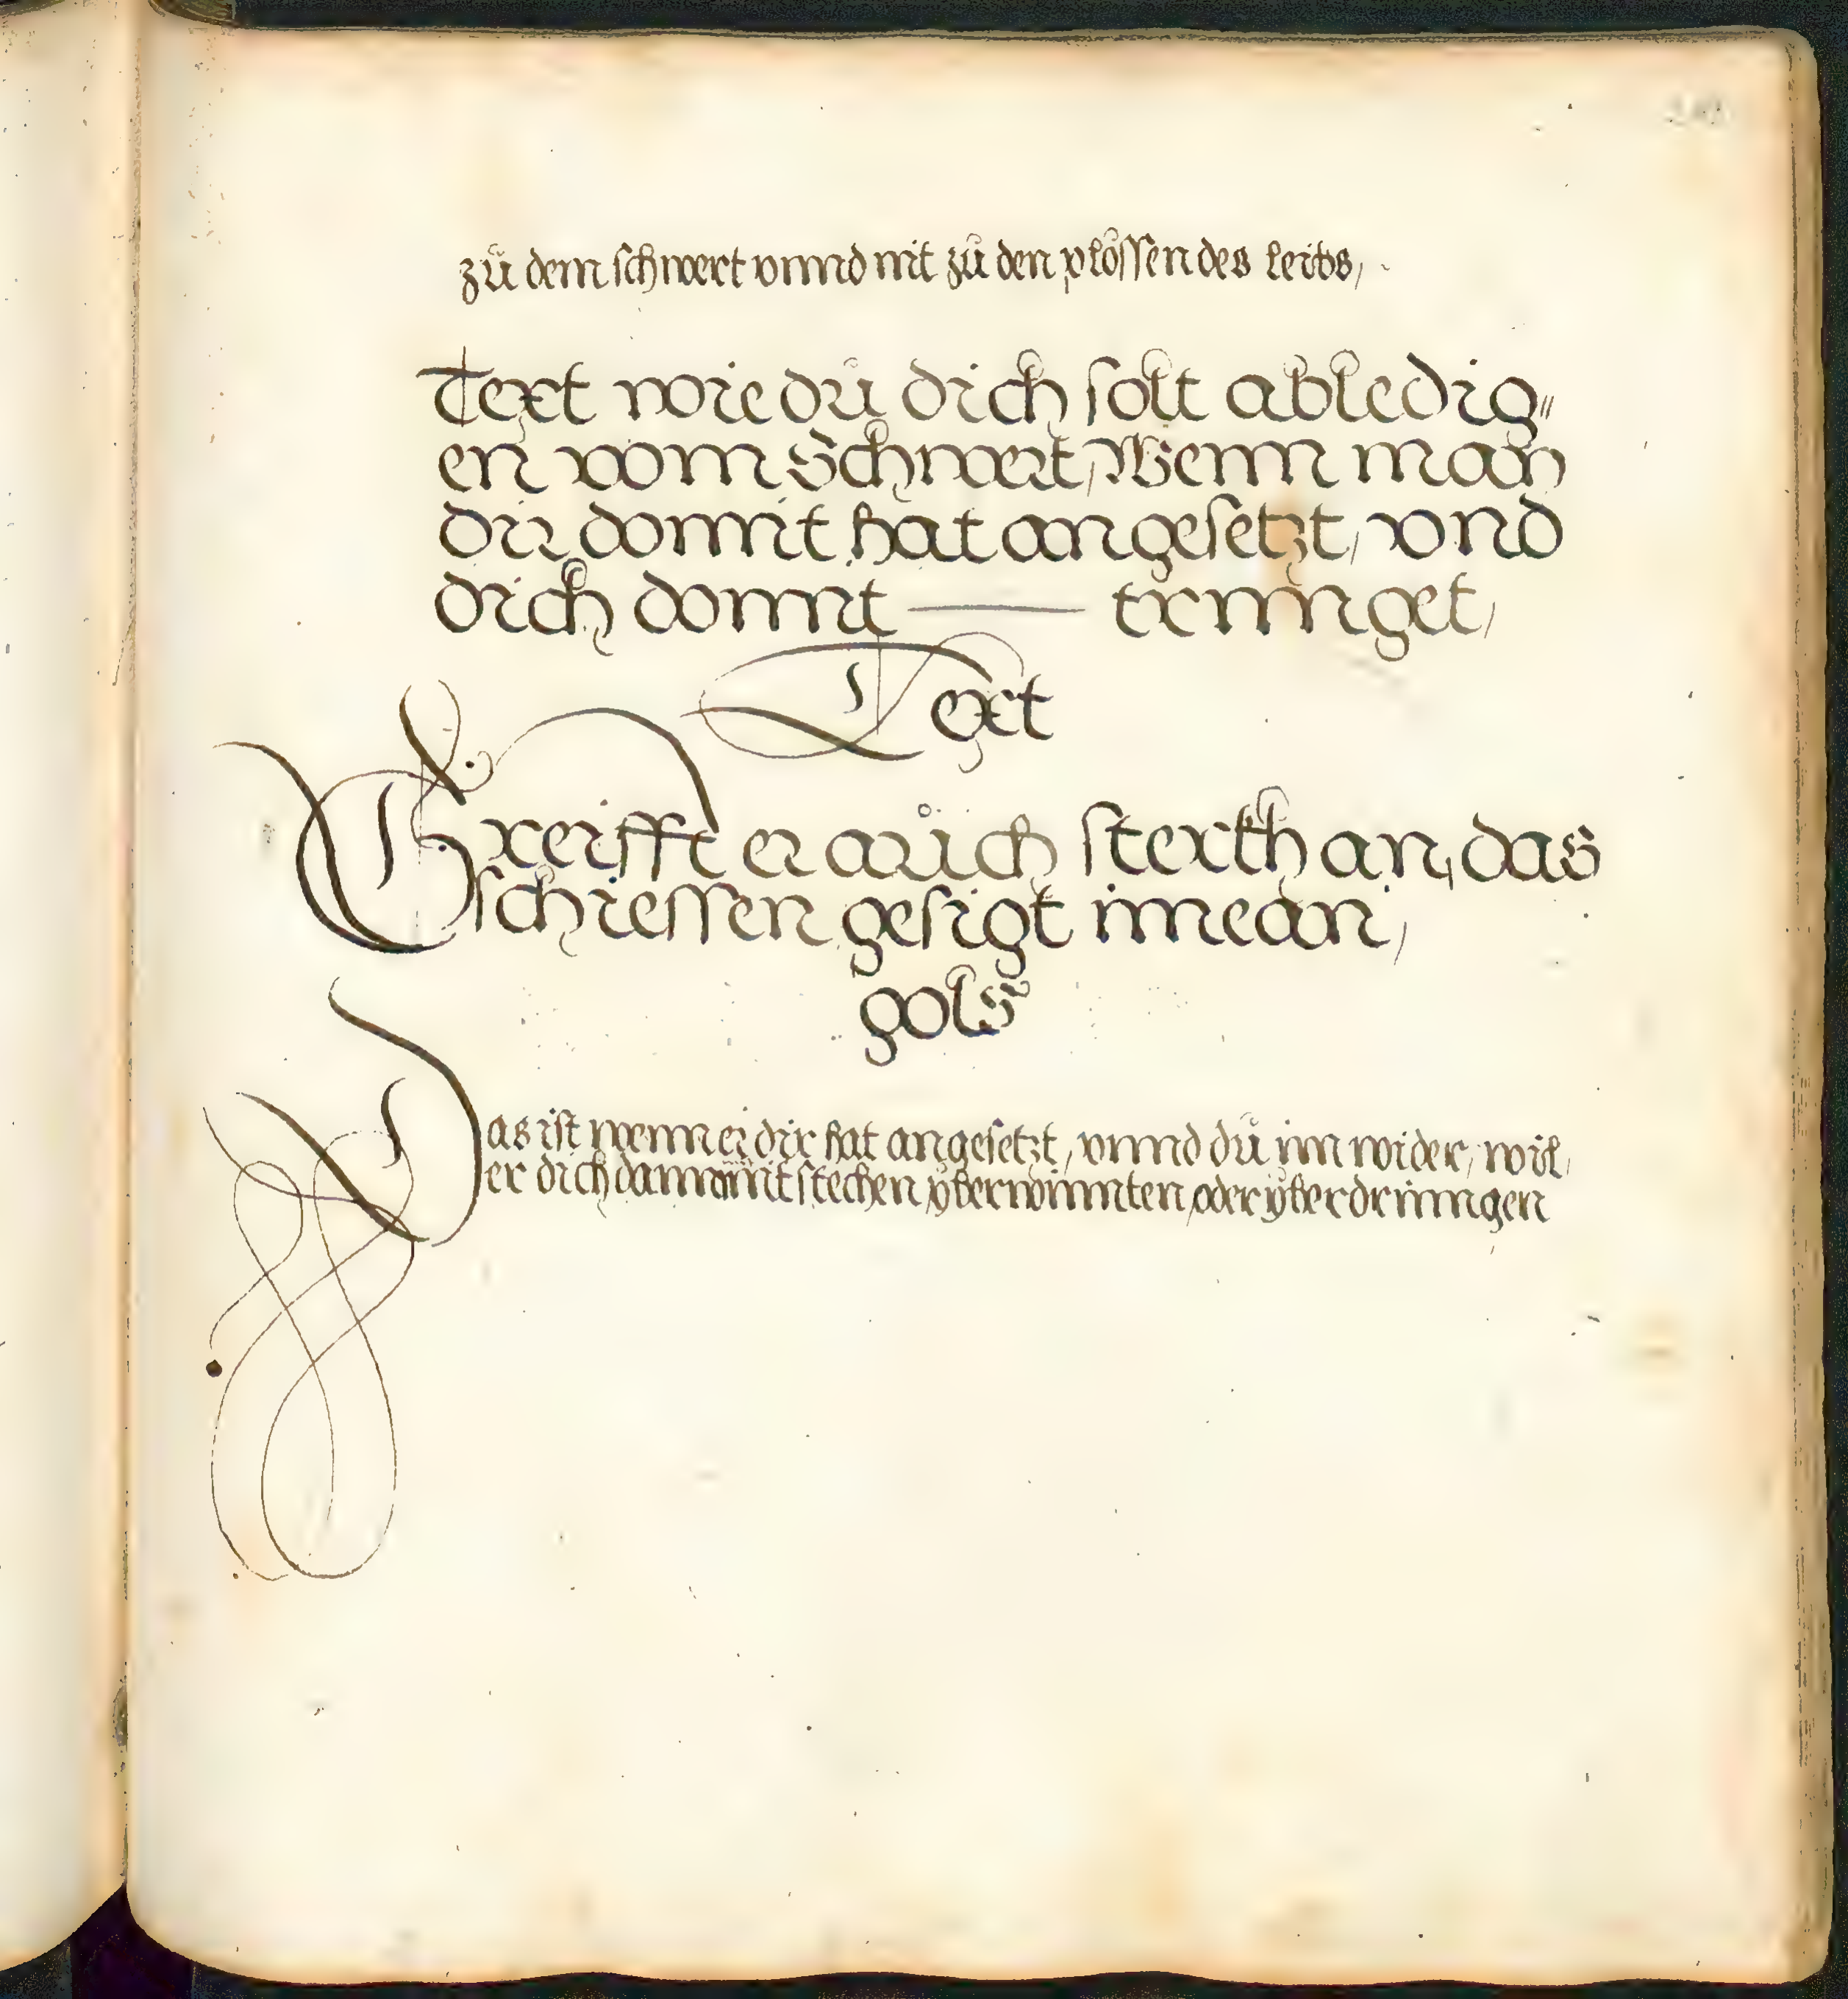 zů dem schwert vnnd nit zů den plössen des leibs,
Text wie dů dich solt abledig„
en vom Schwert, Wenn man
dir domit hat angesetzt, vnd
dich domit — trinnget,
Text
Greifft er aůch sterkh an, das
schiessen gesigt imean,
gols
Das ist wenn er dir hat angesetzt, vnnd dů im wider, wil,
er dich dammit stechen ÿberwinnten, oder ÿberdrinngen